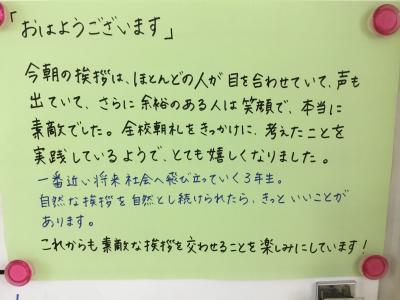 「おはようございます」
今朝の挨拶は、ほとんどの人が目を合わせていて、声も
出ていて、さらに余裕のある人は笑顔で、本当に
素敵でした。全校朝礼をきっかけに、考えたことを
実践しているようで、とても嬉しくなりました。
一番近い将来社会へ飛び立っていく3年生。
自然な挨拶を自然とし続けられたら、きっといいことが
あります。
これからも素敵な挨拶を交わせることを楽しみにしています!